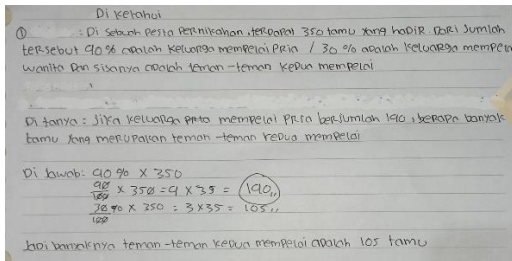 Diketahui
① : Di sebuah pesta pernikahan, terdapat 350 tamu yang hadir. Dari sumlah
tersebut 40% adalah keluarga mempelai pria / 30% adalah keluarga mempelai
wanita dan sisanya adalah teman-teman kedua mempelai
Ditanya : Jika keluarga pria mempelai pria bersumlah 140, berapa banyak
tamu yang merupakan teman-teman kedua mempelai
Di jawab : 40% × 350
40/100 × 350 = 4 × 35 = 140,,
30%/100 × 350 : 3×35 = 105,,
Jadi banyaknya teman-teman kedua mempelai adalah 105 tamu